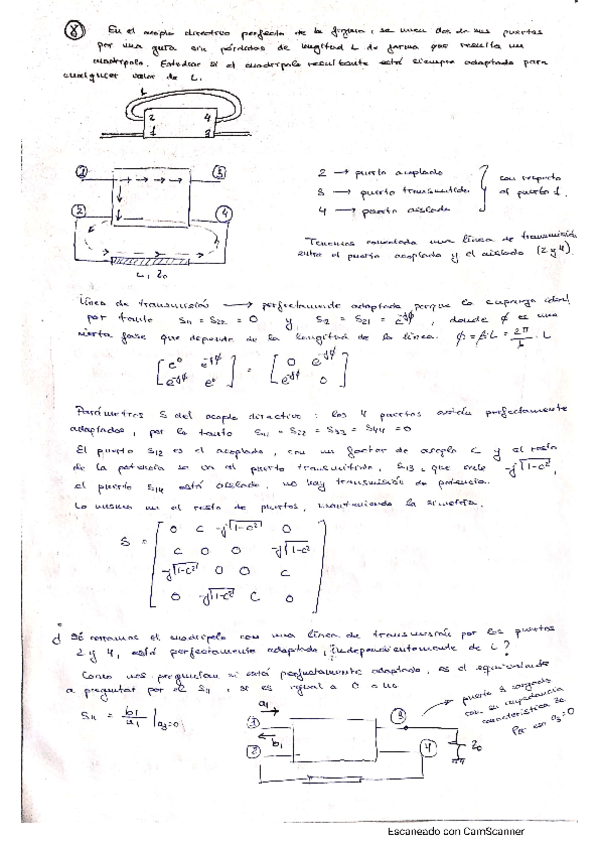 8 En el acoplo directivo perfecto de la figura, se unen dos de sus puertas
por una guía sin pérdidas de longitud L de forma que resulta un
cuadripolo. Estudiar si el cuadripolo resultante está siempre adaptado para
cualquier valor de L.
L
2 4
1 3
1 3
2 4
L, Z₀
2 → puerto acoplado
3 → puerto transmitido
4 → puerto aislado
con respecto
al puerto 1.
Tenemos conectada una línea de transmisión
entre el puerto acoplado y el aislado (2 y 4).
Línea de transmisión → perfectamente adaptada porque lo suponga ideal,
por tanto S₁₁ = S₂₂ = 0 y S₁₂ = S₂₁ = e^-jϕ, donde ϕ es una
cierta fase que depende de la longitud de la línea. ϕ = β·L = 2π/λ · L
[e⁰ e^-jϕ; e^-jϕ e⁰] = [0 e^-jϕ; e^-jϕ 0]
Parámetros S del acoplo directivo: los 4 puertos están perfectamente
adaptados, por lo tanto S₁₁ = S₂₂ = S₃₃ = S₄₄ = 0
El puerto S₁₂ es el acoplado, con un factor de acoplo C y el resto
de la potencia se va al puerto transmitido, S₁₃, que vale -j√1-c²,
el puerto S₁₄ está aislado, no hay transmisión de potencia.
Lo mismo en el resto de puertos, manteniendo la simetría.
S =
0 C -j√1-c² 0
C 0 0 -j√1-c²
-j√1-c² 0 0 C
0 -j√1-c² C 0
¿ Si cerramos el cuadripolo con una línea de transmisión por los puertos
2 y 4, está perfectamente adaptado, independientemente de L?
Como nos preguntan si está perfectamente adaptado, es el equivalente
a preguntar por el S₁₁, si es igual a 0 o no.
S₁₁ = b₁/a₁ |a₃=0
a₁
b₁
1 3
2 4
Z₀
puerto 3 cargado
con su impedancia
característica Z₀
a₃=0
Escaneado con CamScanner